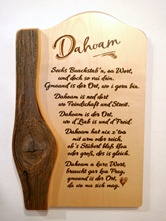 Dahoam
Sechs Buachstab'n, oa Wort,
und doch so vui drin.
Gmoand is der Ort, wo i gern bin.
Dahoam is ned dort
wo Feindschaft und Streit.
Dahoam is der Ort,
wo d'Liab is und d'Freid.
Dahoam hat nix z'toa
mit arm oder reich,
ob's Stüberl bloß kloa
oder groß, des is gleich.
Dahoam a liabs Wort,
braucht gar koa Frag,
gmoand is der Ort,
da wo ma sich mag.